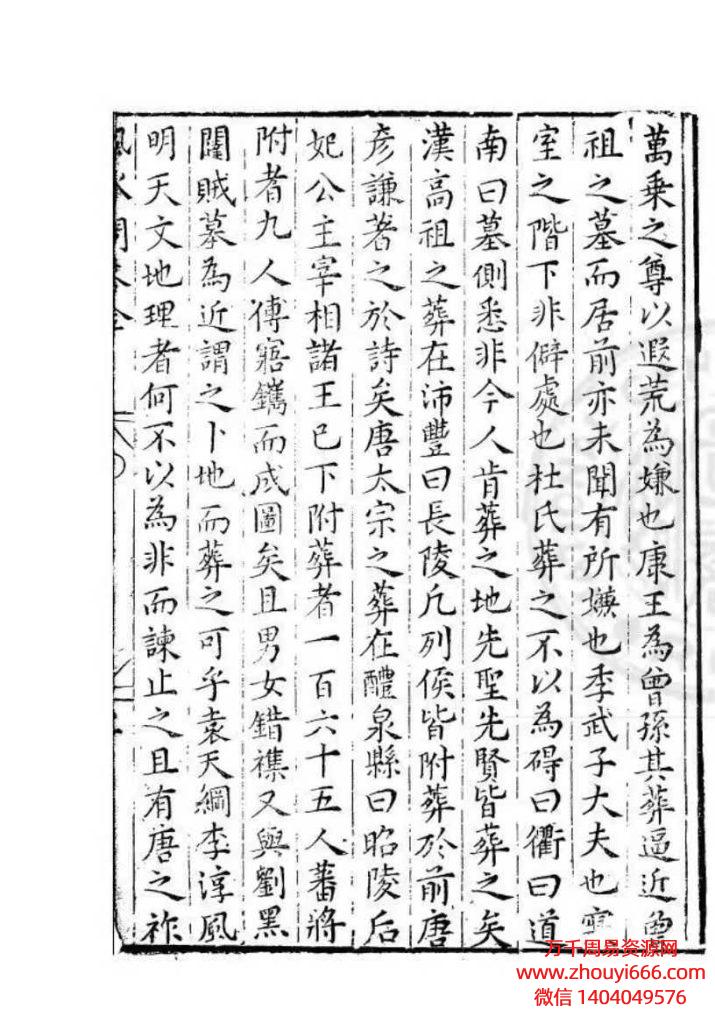 萬乗之尊以遐荒為嫌也康王為曾孫其葬逼近曽
祖之墓而居前亦未聞有所嫌也季武子大夫也寢
室之階下非僻處也杜氏葬之不以為碍曰衢曰道
南曰墓側悉非今人肯葬之地先聖先賢皆葬之矣
漢高祖之葬在沛豐曰長陵凡列侯皆附葬於前唐
彦謙著之於詩矣唐太宗之葬在醴泉縣曰昭陵后
妃公主宰相諸王已下附葬者一百六十五人蕃將
附者九人傳寤鐫而成圖矣且男女錯襍又與劉黑
闥賊墓為近謂之卜地而葬之可乎袁天綱李淳風
明天文地理者何不以為非而諫止之且有唐之祚
万千周易资源网
www.zhouyi666.com
微信 1404049576